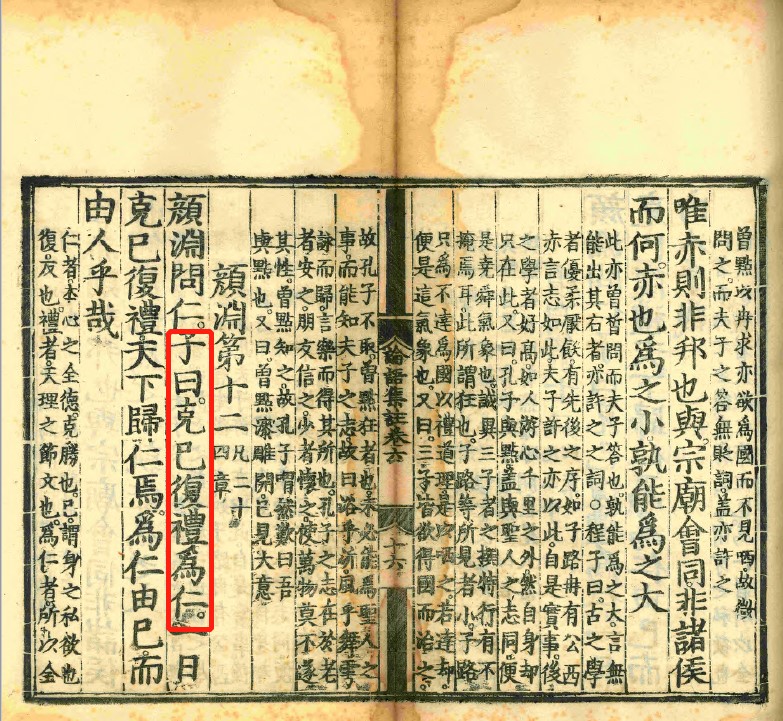 曾點以冉求亦欲爲國而不見哂故微
問之而夫子之答無貶詞蓋亦許之
唯赤則非邦也與宗廟會同非諸侯
而何赤也爲之小孰能爲之大
此亦曾晳問而夫子答也孰能爲之大言無
能出其右者亦許之之詞○程子曰古之學
者優柔厭飫有先後之序如子路冉有公西
赤言志如此夫子許之亦以此自是實事後
之學者好高如人游心千里之外然自身却
只在此又曰孔子與點蓋與聖人之志同便
是堯舜氣象也誠異三子者之撰特行有不
掩焉耳此所謂狂也子路等所見者小子路
只爲不達爲國以禮道理是以哂之若達却
便是這氣象也又曰三子皆欲得國而治之
論語集註卷六
十六
故孔子不取曾點狂者也未必能爲聖人之
事而能知夫子之志故曰浴乎沂風乎舞雩
詠而歸言樂而得其所也孔子之志在於老
者安之朋友信之少者懷之使萬物莫不遂
其性曾點知之故孔子喟然歎曰吾
與點也又曰曾點漆雕開已見大意
顔淵第十二
凡二十
四章
顔淵問仁子曰克己復禮爲仁一日
克己復禮天下歸仁焉爲仁由己而
由人乎哉
仁者本心之全德克勝也己謂身之私欲也
復反也禮者天理之節文也爲仁者所以全